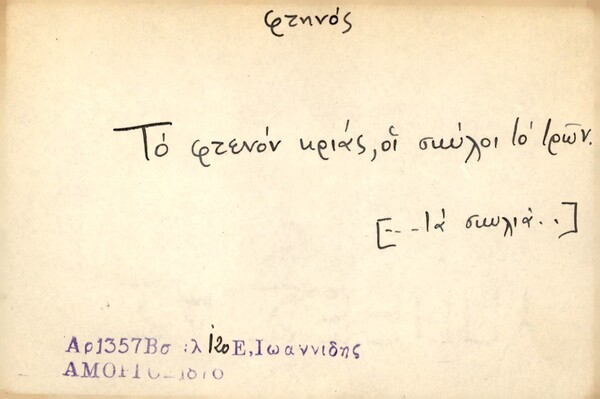 φτηνός
Τό φτενόν κριάς, οἱ σκύλοι τό τρῶν.
[-- - τά σκυλιά . . ]
Αρ1357Βσ :λ 120 Ε, Ιωαννιδης
ΑΜΟΡΓΟΣ 1876